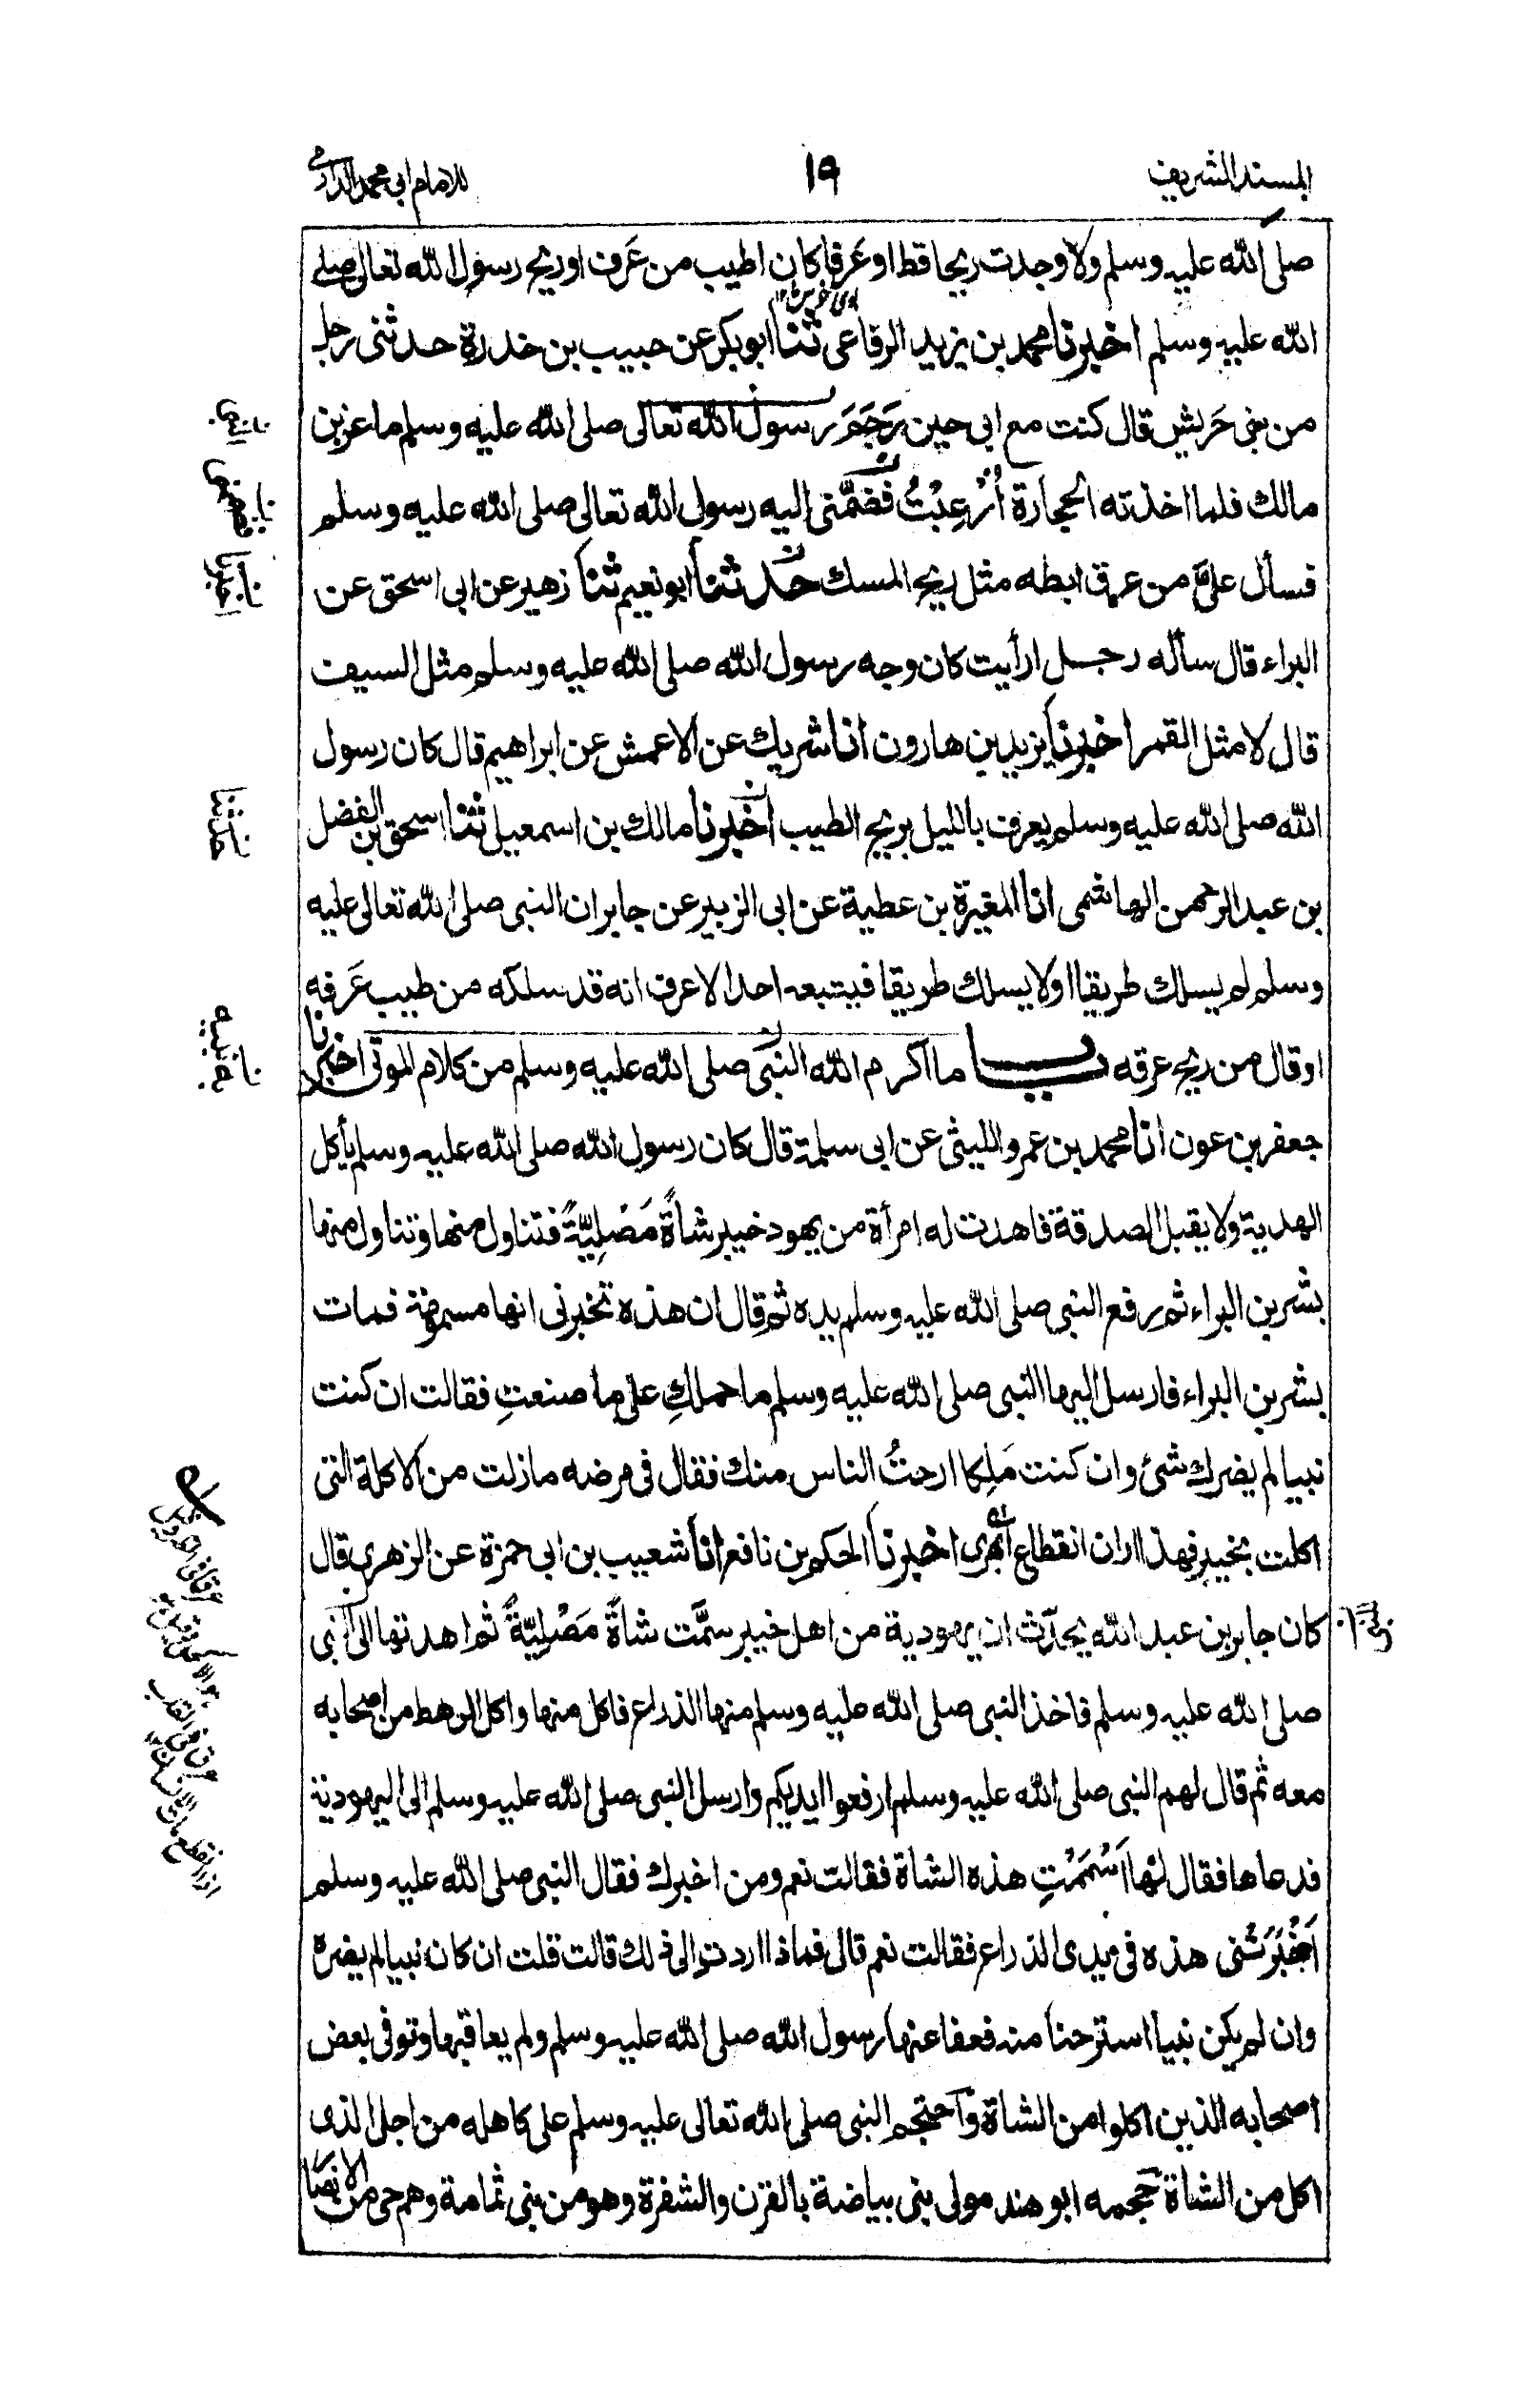 المسند الشريف
١٩
للامام ابى محمد الدارمى
صلى الله عليه وسلم ولا وجدت ريحا قط او عَرفا كان اطيب من عَرف او ريح رسول الله تعالى صلى
الله عليه وسلم اخبرنا محمد بن يزيد الرفاعى ثنا ابوبكر عن حبيب بن خدرة حدثنى رجل
من بنى حَريش قال كنت مع ابى حين رَجَمَ رسول الله تعالى صلى الله عليه وسلم ماعز بن
مالك فلما اخذته الحجارة اُرْعِبْتُ فضمّنى اليه رسول الله تعالى صلى الله عليه وسلم
فسأل علىَّ من عرق ابطه مثل ريح المسك حدثنا ابو نعيم ثنا زهير عن ابى اسحق عن
البراء قال سأله رجل ارأيت كان وجه رسول الله صلى الله عليه وسلم مثل السيف
قال لا مثل القمر اخبرنا يزيد بن هارون انا شريك عن الاعمش عن ابراهيم قال كان رسول
الله صلى الله عليه وسلم يعرف بالليل بريح الطيب اخبرنا مالك بن اسمعيل ثنا اسحق بن الفضل
بن عبد الرحمن الهاشمى انا المغيرة بن عطية عن ابى الزبير عن جابر ان النبى صلى الله تعالى عليه
وسلم لم يسلك طريقا او لا يسلك طريقا فيتبعه احد الا عرف انه قد سلكه من طيب عَرفه
او قال من ريح عرقه باب ما اكرم الله النبى صلى الله عليه وسلم من كلام الموتى اخبرنا
جعفر بن عون انا محمد بن عمرو الليثى عن ابى سلمة قال كان رسول الله صلى الله عليه وسلم يأكل
الهدية ولا يقبل الصدقة فاهدت له امرأة من يهود خيبر شاةً مَصْلِيّةً فتناول منها وتناول منها
بشر بن البراء ثم رفع النبى صلى الله عليه وسلم يده ثم قال ان هذه تخبرنى انها مسمومة فمات
بشر بن البراء فارسل اليها النبى صلى الله عليه وسلم ما حملكِ على ما صنعتِ فقالت ان كنت
نبيا لم يضرك شئ وان كنت مَلِكا ارحتُ الناس منك فقال فى مرضه ما زلت من الاكلة التى
اكلت بخيبر فهذا اوان انقطاع ابهرى اخبرنا الحكم بن نافع انا شعيب بن ابى حمزة عن الزهرى قال
كان جابر بن عبد الله يحدّث ان يهودية من اهل خيبر سمَّت شاةً مَصْلِيّةً ثم اهدتها الى النبى
صلى الله عليه وسلم فاخذ النبى صلى الله عليه وسلم منها الذراع فاكل منها واكل الرهط من اصحابه
معه ثم قال لهم النبى صلى الله عليه وسلم ارفعوا ايديكم وارسل النبى صلى الله عليه وسلم الى اليهودية
فدعاها فقال لها اَسَمَمْتِ هذه الشاة فقالت نعم ومن اخبرك فقال النبى صلى الله عليه وسلم
اَخْبَرَتْنى هذه فى يدى الذراع فقالت نعم قال فماذا اردت الى ذلك قالت قلت ان كان نبيا لم يضره
وان لم يكن نبيا استرحنا منه فعفا عنها رسول الله صلى الله عليه وسلم ولم يعاقبها وتوفى بعض
اصحابه الذين اكلوا من الشاة واحتجم النبى صلى الله تعالى عليه وسلم على كاهله من اجل الذى
اكل من الشاة حجمه ابو هند مولى بنى بياضة بالقرن والشفرة وهو من بنى ثمامة وهم حى من الانصا